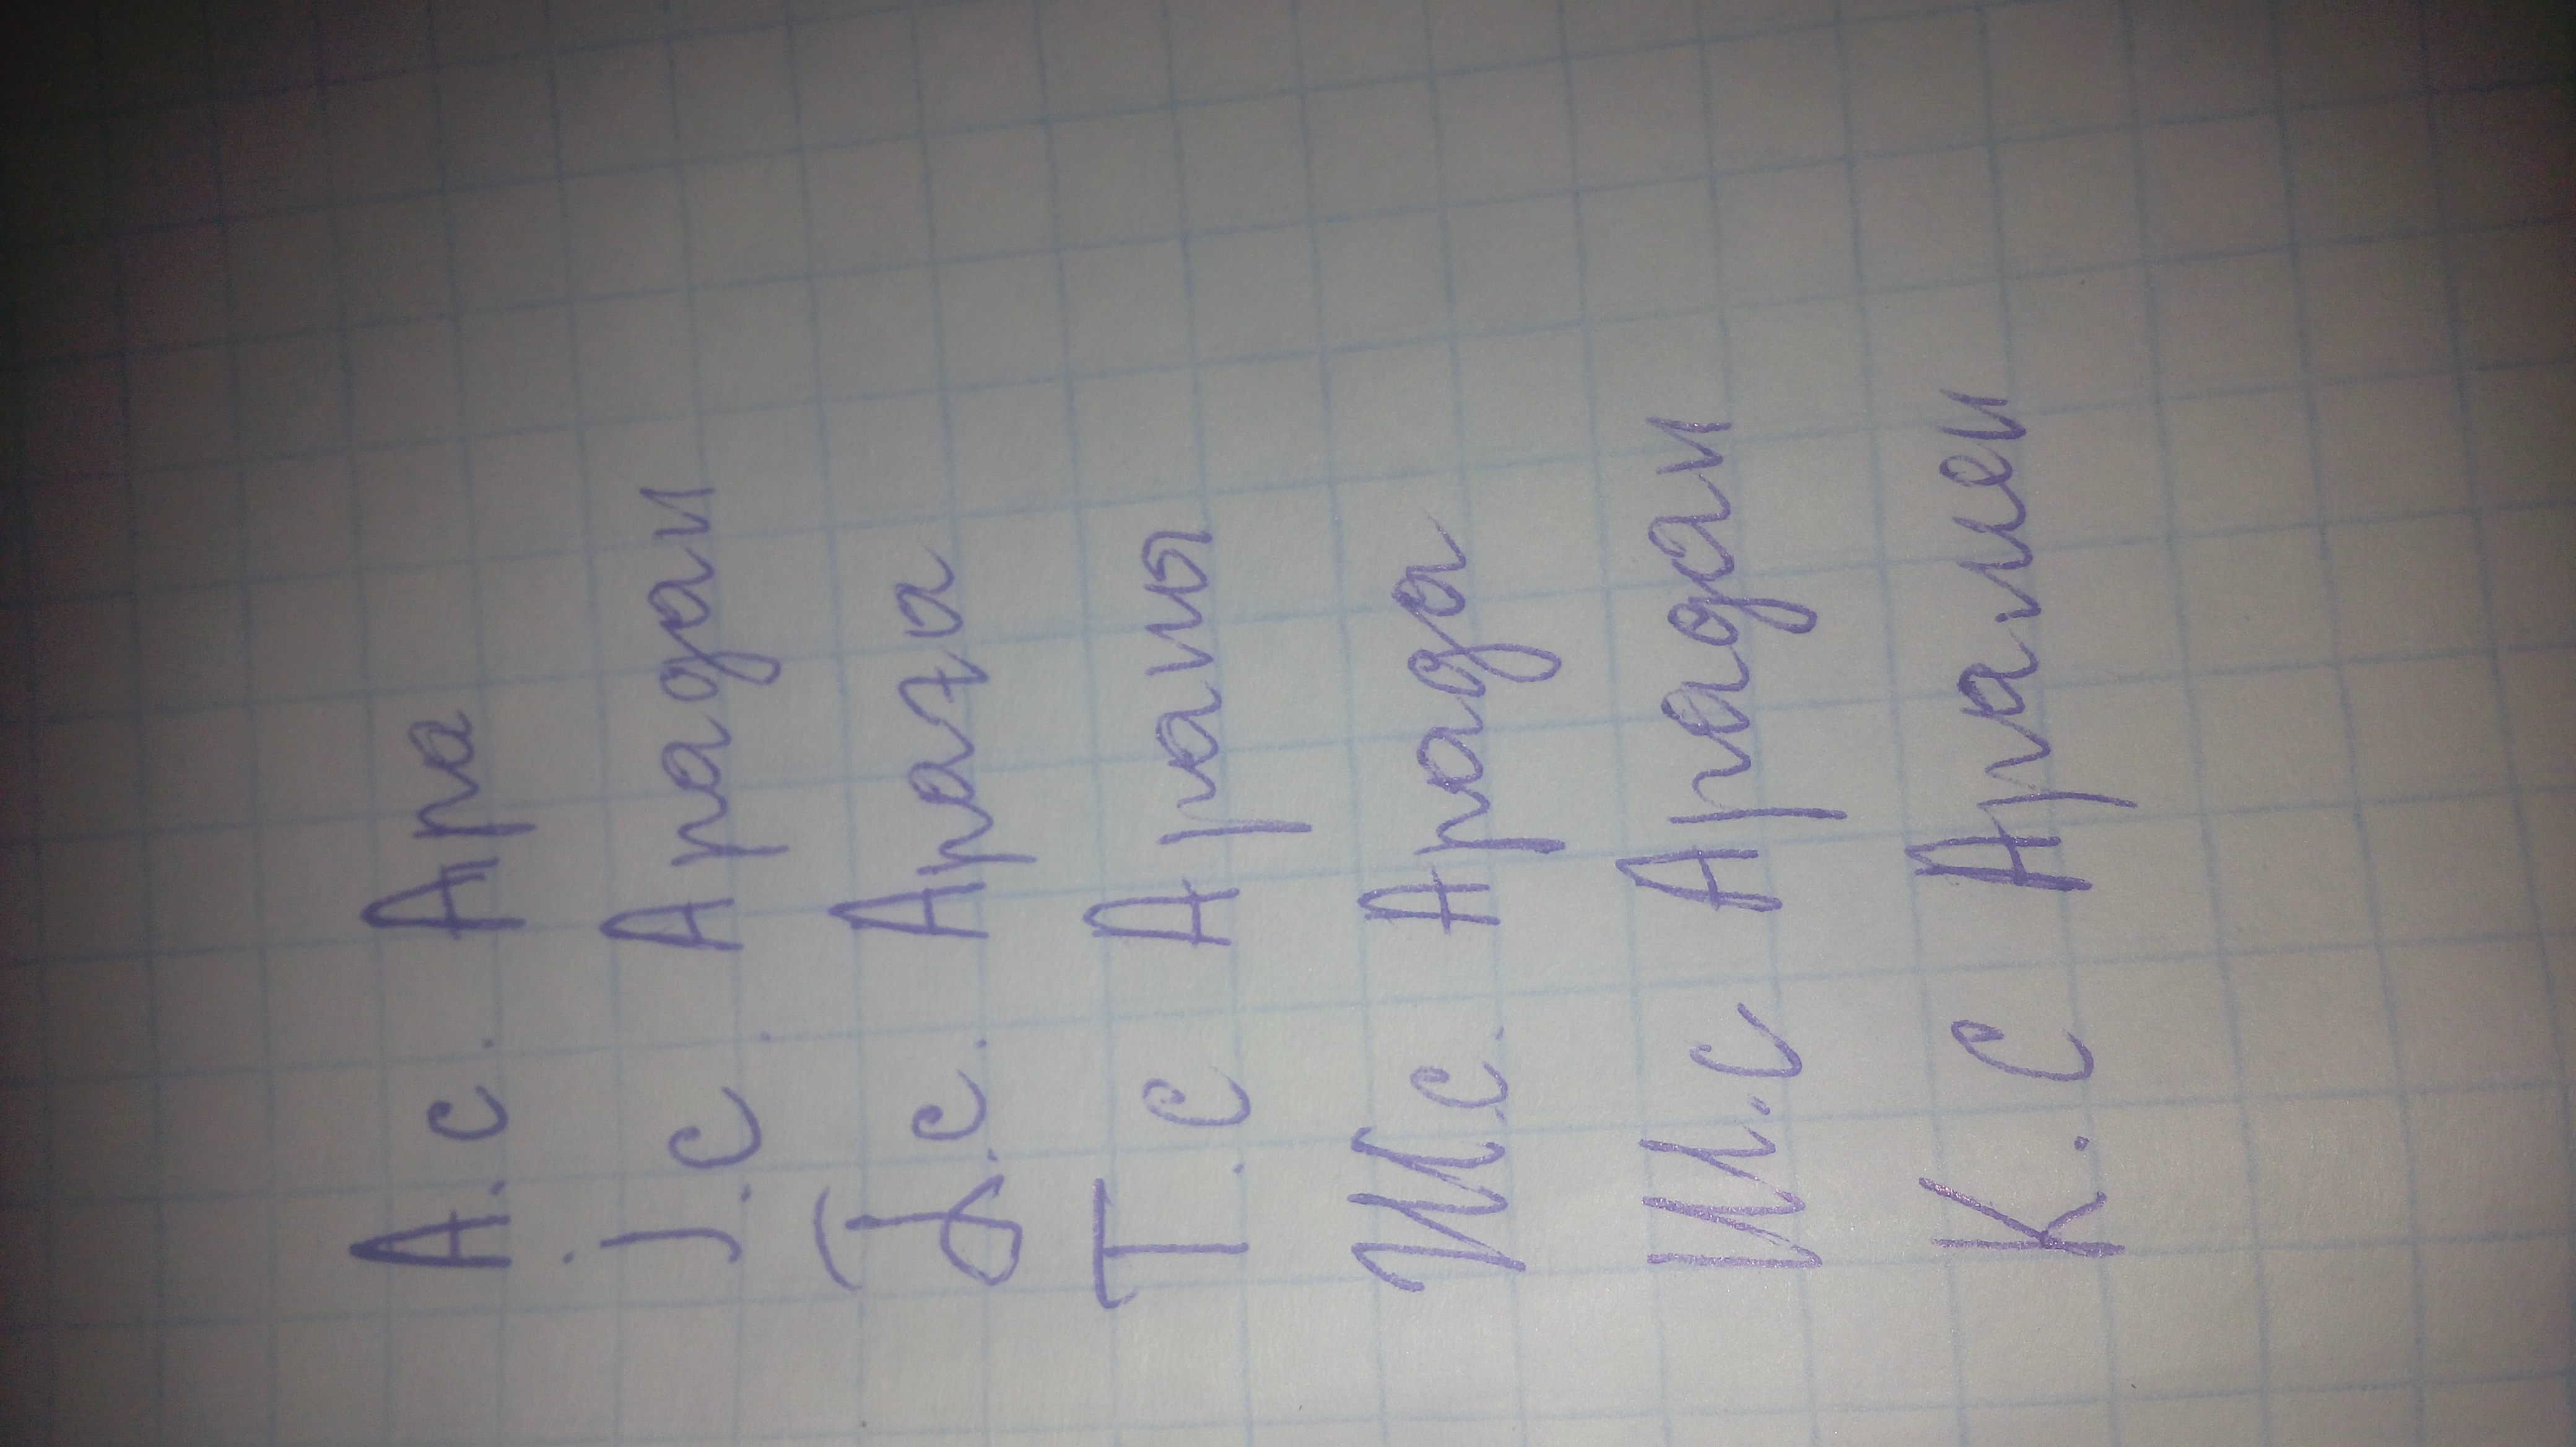 А.с. Ара
І.с. Арадан
Б.с. Араға
Т.с Араны
Ж.с. Арада
Ш.с Арадан
К.с Арамен